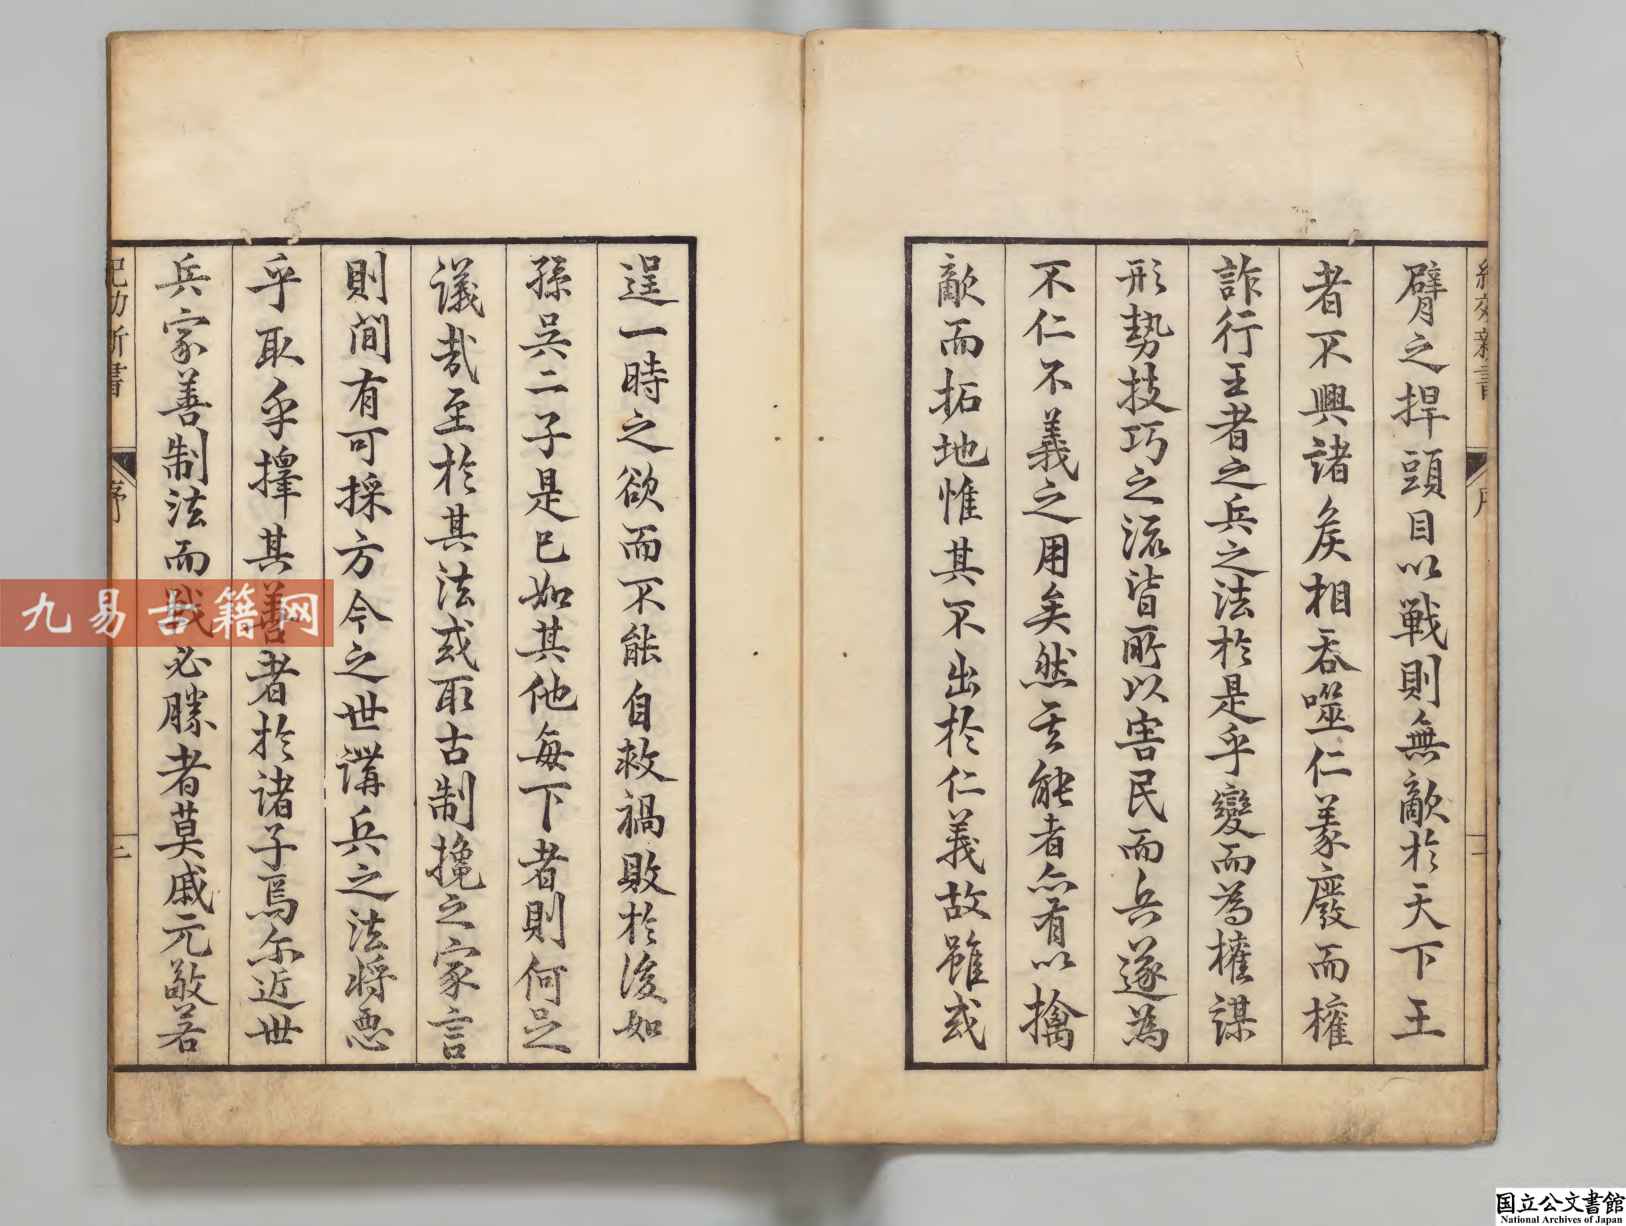 紀效新書
序
二
臂之捍頭目以戰則無敵於天下王
者不興諸矦相吞噬仁義廢而權
詐行王者之兵之法於是乎變而為權謀
形勢技巧之流皆所以害民而兵遂為
不仁不義之用矣然其能者亦有以擒
敵而拓地惟其不出於仁義故雖或
逞一時之欲而不能自救禍敗於後如
孫吳二子是已如其他每下者則何足
議哉至於其法或取古制攙之家言
則間有可採方今之世講兵之法將惡
乎取乎擇其善者於諸子焉尔近世
兵家善制法而戰必勝者莫戚元敬若
紀効新書
序
三
九易古籍网
国立公文書館
National Archives of Japan